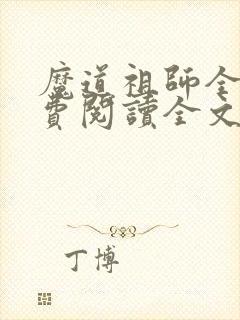 魔道祖師全
費閱讀全文
丁博